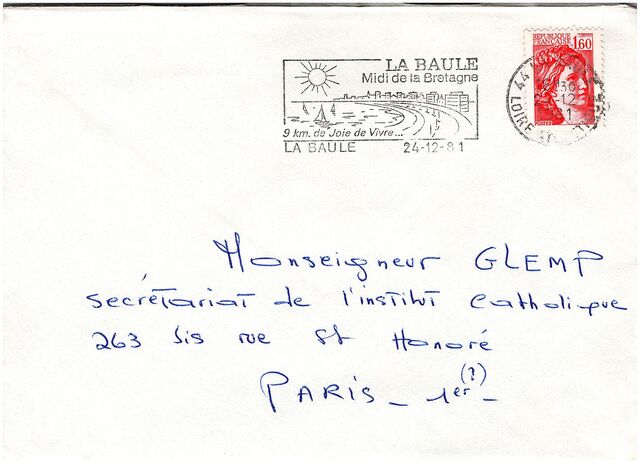 LA BAULE
Midi de la Bretagne
9 km. de Joie de Vivre...
LA BAULE 24-12-81
REPUBLIQUE
FRANCAISE
1,60
44
LOIRE
Monseigneur GLEMP
secrétariat de l'institut Catholique
263 bis rue St Honoré
PARIS - 1er (?) -